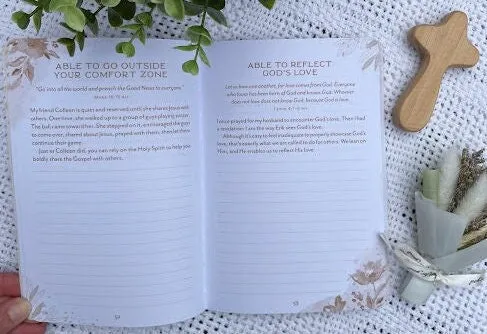 ABLE TO GO OUTSIDE
YOUR COMFORT ZONE
"Go into all the world and preach the Good News to everyone."
MARK 16:15 NLT
My friend Colleen is quiet and reserved until she shares Jesus with
others. One time, she walked up to a group of guys playing
The ball came toward her. She stepped on it, encouraged the guys
to come over, shared about Jesus, prayed with them, then let them
continue their game.
Just as Colleen did, you can rely on the Holy Spirit to help you
boldly share the Gospel with others.
52
ABLE TO REFLECT
GOD'S LOVE
Let us love one another, for love comes from God. Everyone
who loves has been born of God and knows God. Whoever
does not love does not know God, because God is love.
1 JOHN 4:7-8 NIV
I once prayed for my husband to encounter God's love. Then I had
a revelation: I am the way Erik sees God's love.
Although it's easy to feel inadequate to properly showcase God's
love, that's exactly what we are called to do for others. We lean on
Him, and He enables us to reflect His love.
53